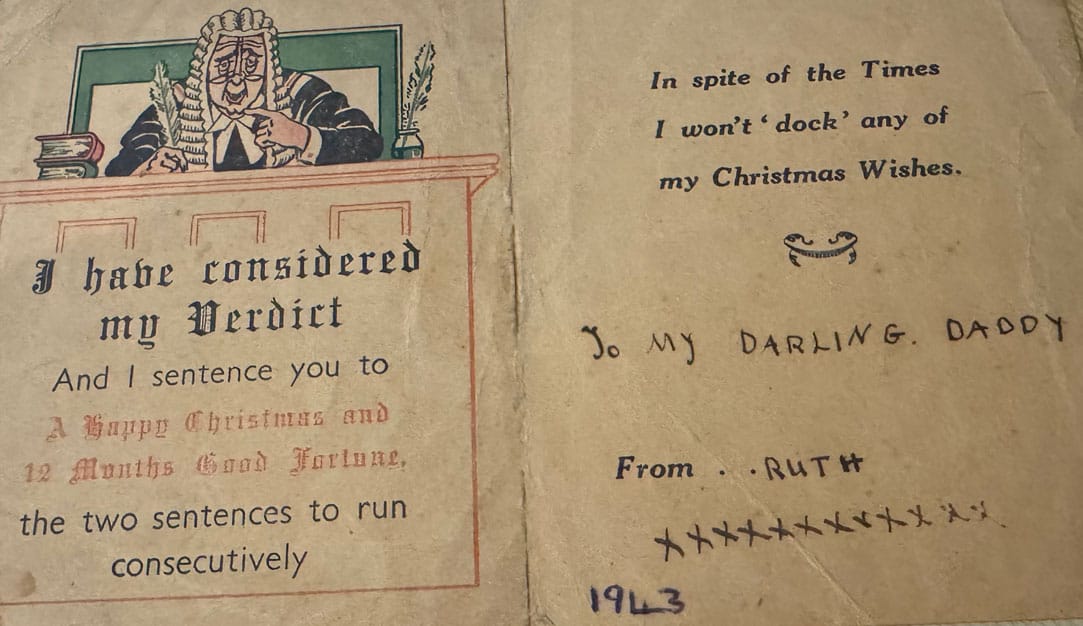 I have considered
my Verdict
And I sentence you to
A Happy Christmas and
12 Months Good Fortune,
the two sentences to run
consecutively
In spite of the Times
I won't ‘dock’ any of
my Christmas Wishes.
To MY DARLING. DADDY
From . . RUTH
xxxxxxxxxxxxx
1943